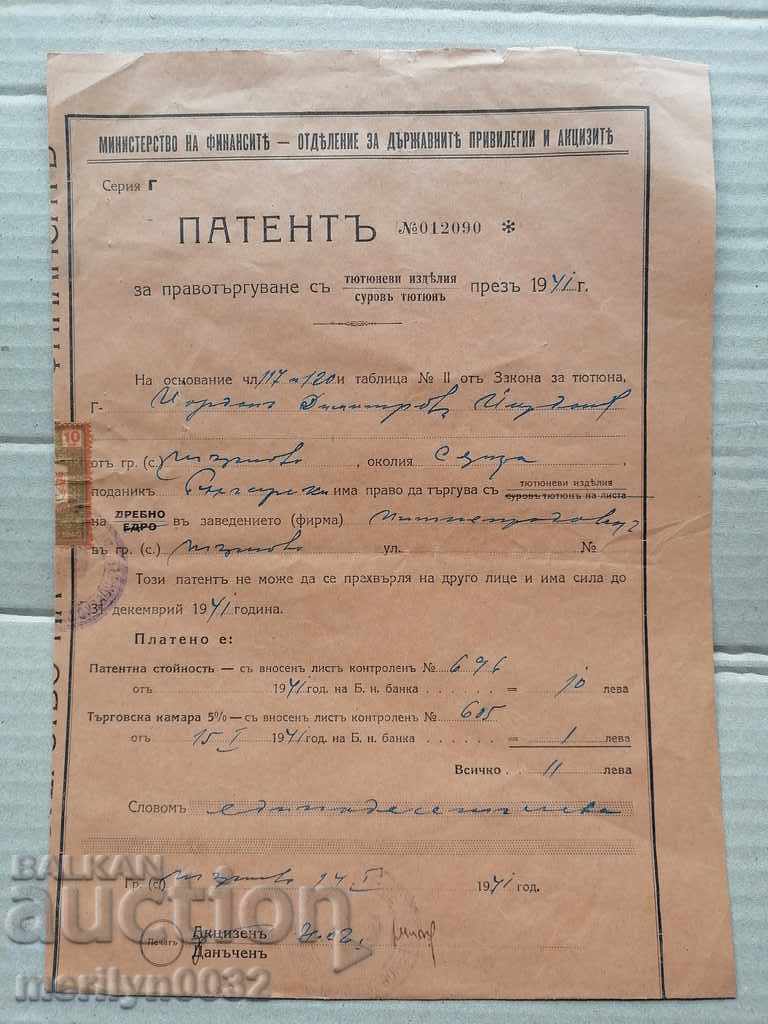 МИНИСТЕРСТВО НА ФИНАНСИТѢ — ОТДѢЛЕНИЕ ЗА ДЪРЖАВНИТѢ ПРИВИЛЕГИИ И АКЦИЗИТѢ
Серия Г
ПАТЕНТЪ №012090 *
за правотъргуване съ тютюневи изделия суровъ тютюнъ презъ 1941 г.
На основание чл. 117 и 120 и таблица № II отъ Закона за тютюна,
Г- Йорданъ Димитровъ
отъ гр. (с.) околия
поданикъ има право да търгува съ тютюневи изделия суровъ тютюнъ на листа
на ДРЕБНО ЕДРО въ заведението (фирма)
въ гр. (с.) ул. №
Този патентъ не може да се прехвърля на друго лице и има сила до
31 декемврий 1941 година.
Платено е:
Патентна стойность — съ вносенъ листъ контроленъ № 696
отъ 1941 год. на Б. н. банка = 10 лева
Търговска камара 5% — съ вносенъ листъ контроленъ № 605
отъ 15 I 1941 год. на Б. н. банка = 1 лева
Всичко 11 лева
Словомъ единадесеть лева
Гр. (с.) 1941 год.
Печатъ
Акцизенъ
Данъченъ
10
BALKAN
auction
merilyn0032